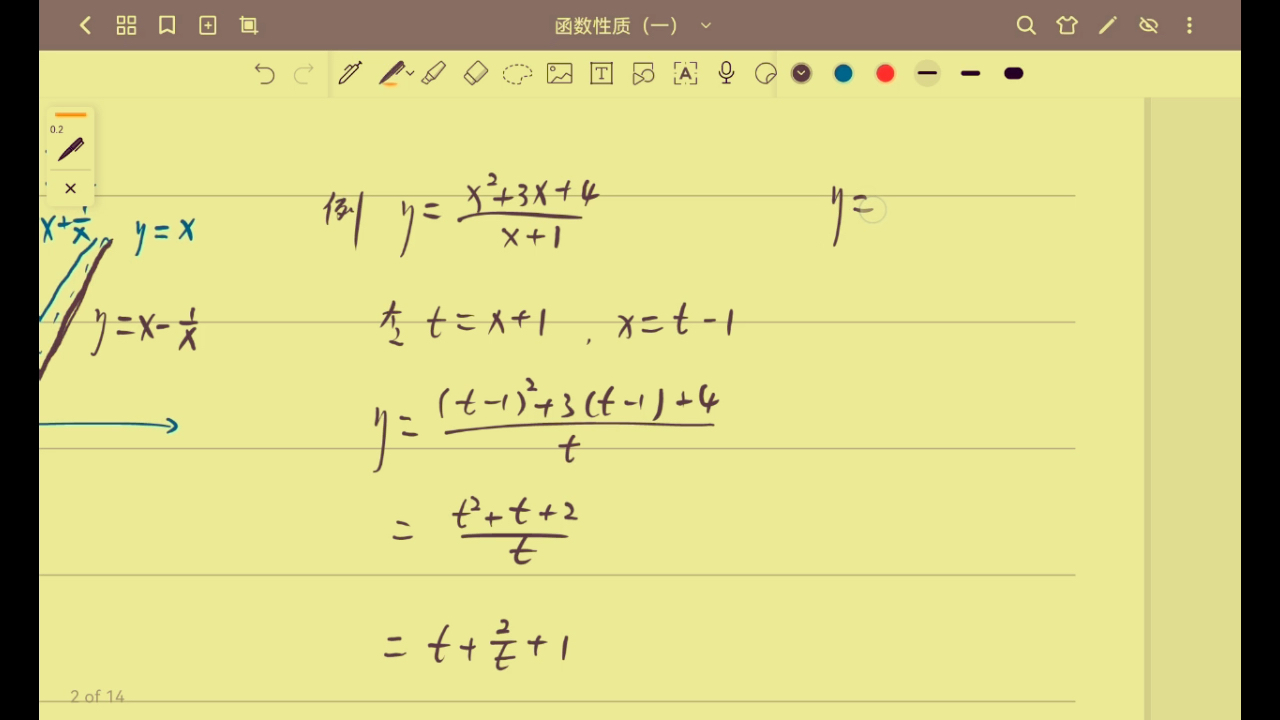 函数性质（一）
0.2
x+1/x y=x
y=x-1/x
例 y=(x²+3x+4)/(x+1)
y=
令 t=x+1, x=t-1
y=((t-1)²+3(t-1)+4)/t
=(t²+t+2)/t
=t+2/t+1
2 of 14